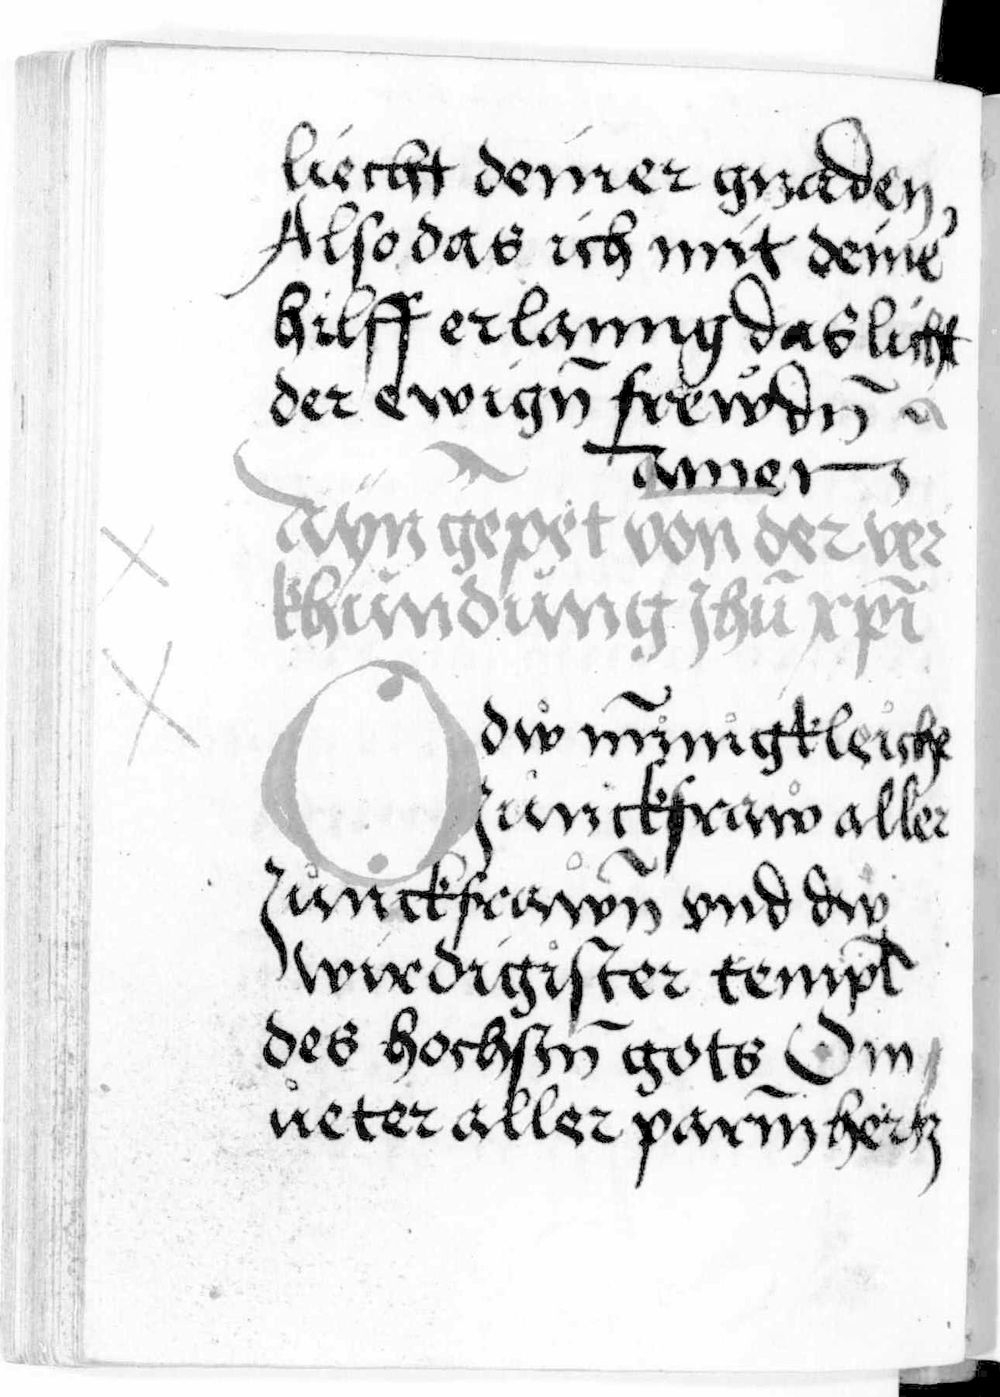 liecht deiner gnaden,
Also das ich mit deine᷑
hilff erlanng das licht
der ewign̄ frewdn̄ a
amen
Ayn gepet von der ver
khůndůng Jhū xpī
O dw mȳnigkleiche
Junckfraw aller
Junckfrawn̄ vnd dw
wirdigister templ
des hochstn̄ gots O m
ůeter aller parm̄hertz